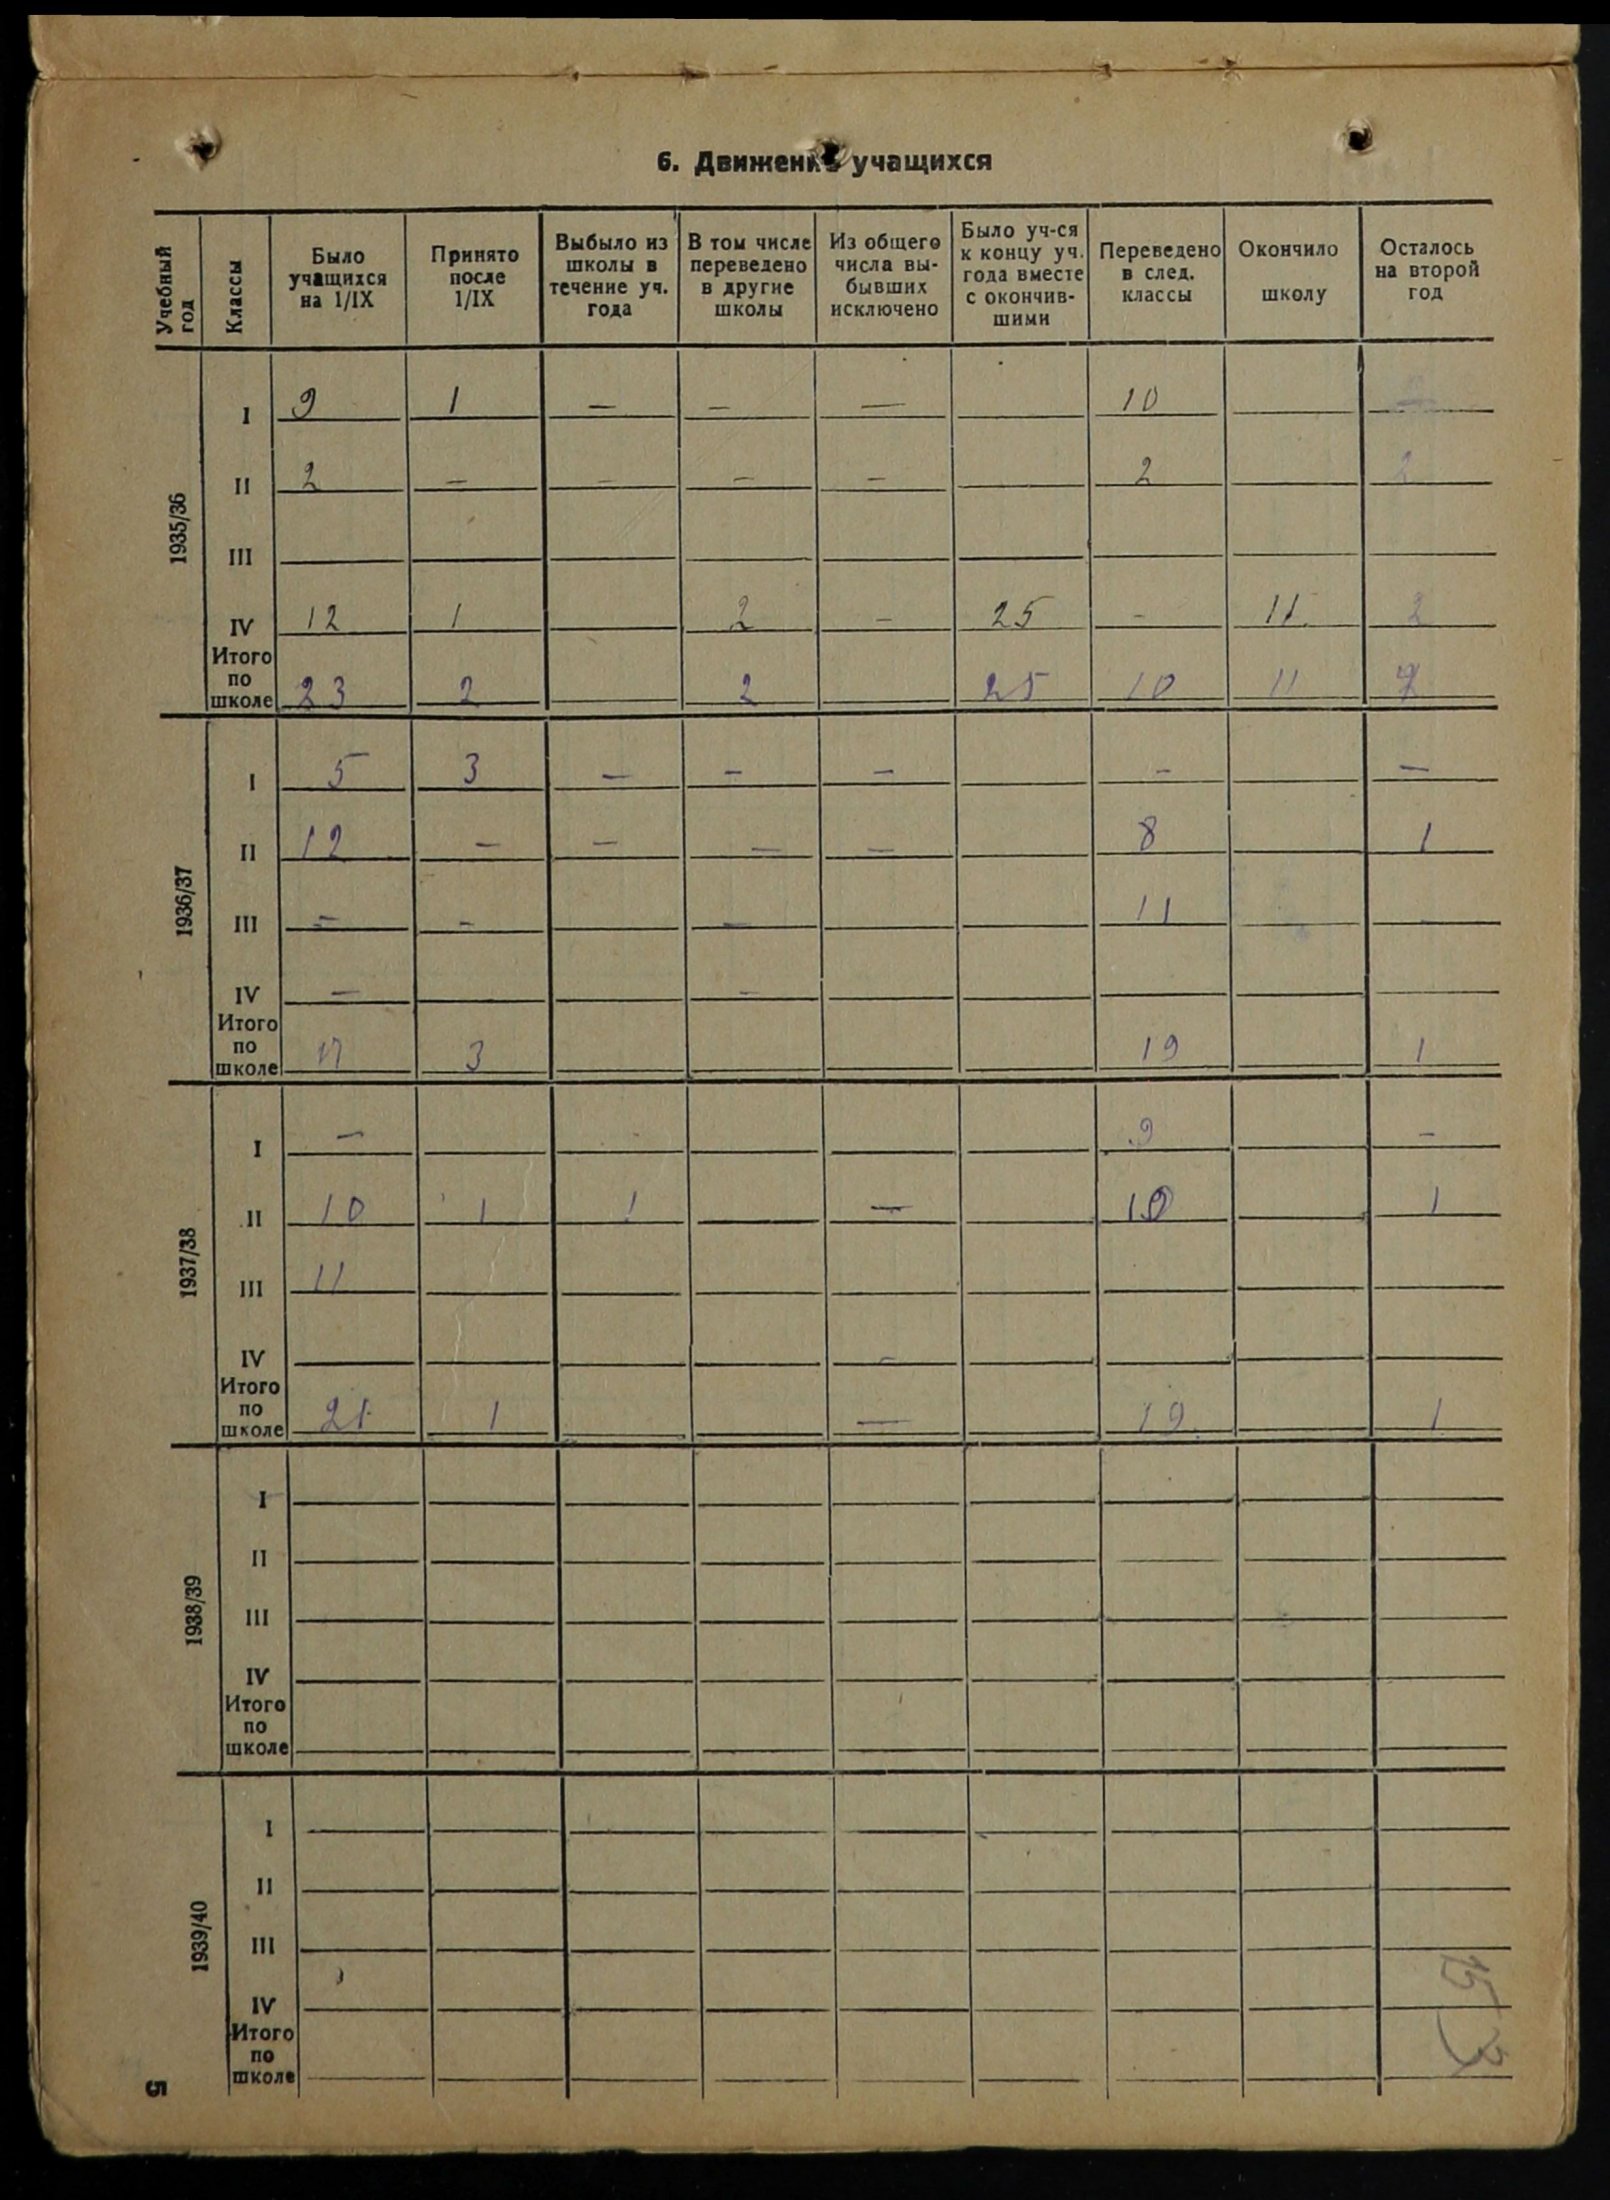 6. Движение учащихся
Учебный год | Классы | Было учащихся на 1/IX | Принято после 1/IX | Выбыло из школы в течение уч. года | В том числе переведено в другие школы | Из общего числа вы-бывших исключено | Было уч-ся к концу уч. года вместе с окончив-шими | Переведено в след. классы | Окончило школу | Осталось на второй год
1935/36
I 9 1 — — — 10
II 2 — — — — 2 2
III
IV 12 1 2 — 25 — 11 2
Итого по школе 23 2 2 25 10 11
1936/37
I 5 3 — — — — —
II 12 — — — — 8 1
III — — — 11
IV — —
Итого по школе 17 3 19 1
1937/38
I — 9 —
II 10 1 1 — 10 1
III 11
IV —
Итого по школе 21 1 — 19 1
1938/39
I
II
III
IV
Итого по школе
1939/40
I
II
III
IV
Итого по школе
5